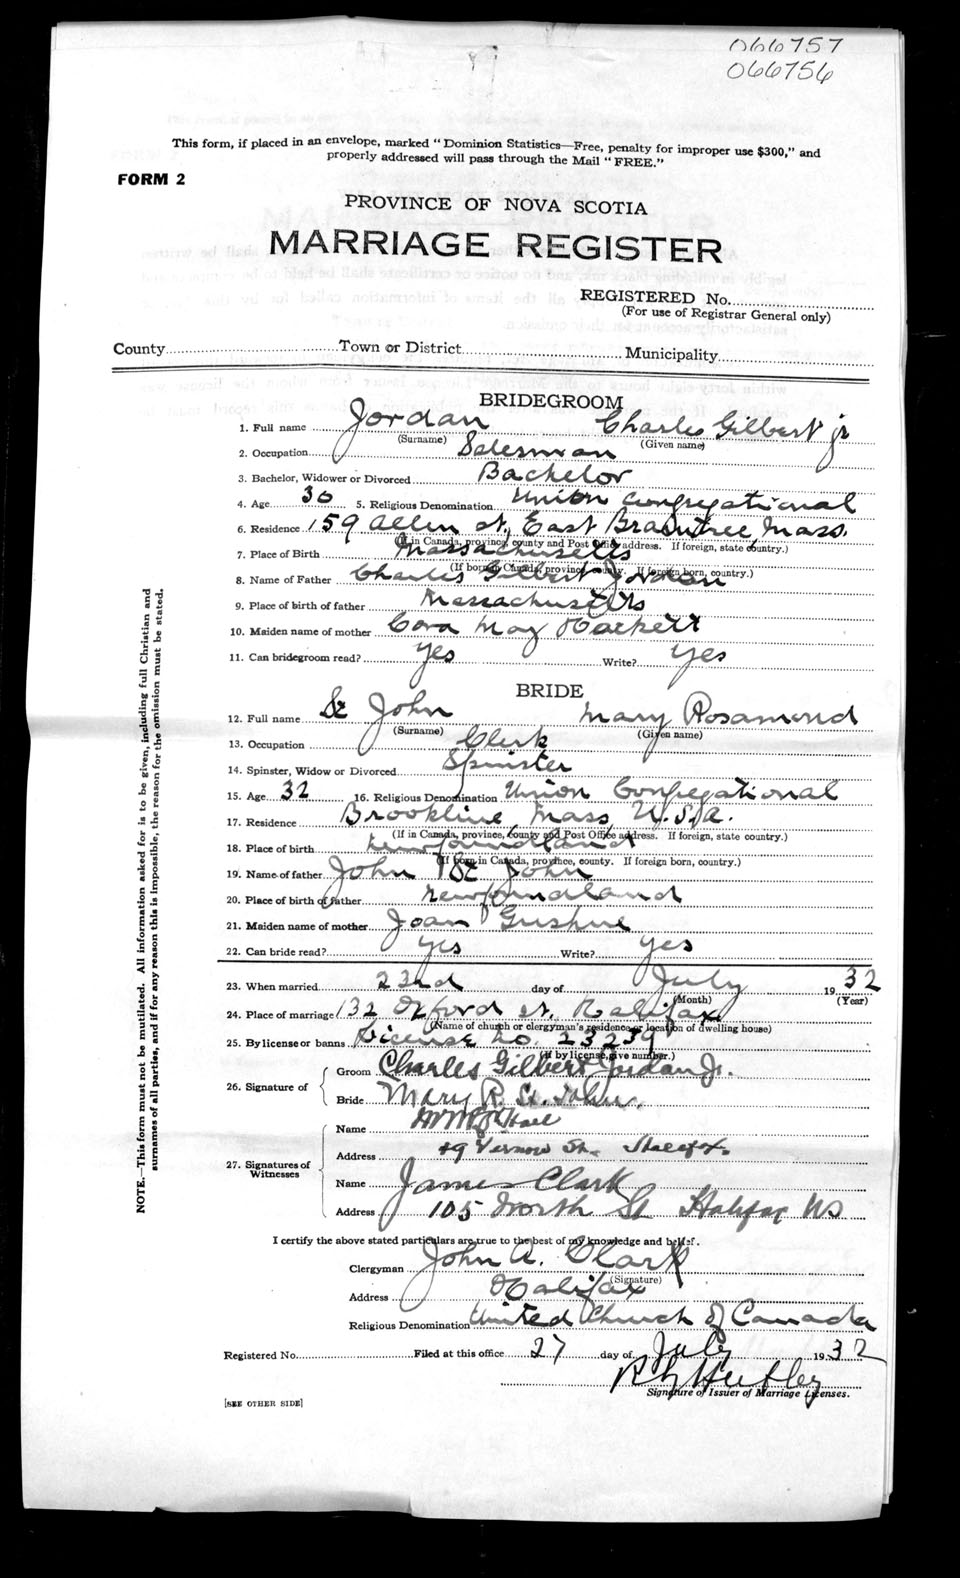 066757
066756
This form, if placed in an envelope, marked "Dominion Statistics—Free, penalty for improper use $300," and
properly addressed will pass through the Mail "FREE."
FORM 2
PROVINCE OF NOVA SCOTIA
MARRIAGE REGISTER
REGISTERED No.
(For use of Registrar General only)
County Town or District Municipality
BRIDEGROOM
1. Full name Jordan Charles Gilbert jr
(Surname) (Given name)
2. Occupation Salesman
3. Bachelor, Widower or Divorced Bachelor
4. Age 30 5. Religious Denomination Union Congregational
6. Residence 159 Allen st, East Braintree, Mass.
(If in Canada, province, county and Post Office address. If foreign, state country.)
7. Place of Birth Massachusetts
(If born in Canada, province, county. If foreign born, country.)
8. Name of Father Charles Gilbert Jordan
9. Place of birth of father Massachusetts
10. Maiden name of mother Cora May Hackett
11. Can bridegroom read? Yes Write? Yes
BRIDE
12. Full name St John Mary Rosamond
(Surname) (Given name)
13. Occupation Clerk
14. Spinster, Widow or Divorced Spinster
15. Age 32 16. Religious Denomination Union Congregational
17. Residence Brookline, Mass, U.S.A.
(If in Canada, province, County and Post Office address. If foreign, state country.)
18. Place of birth Newfoundland
(If born in Canada, province, county. If foreign born, country.)
19. Name of father John St John
20. Place of birth of father Newfoundland
21. Maiden name of mother Joan Gushue
22. Can bride read? Yes Write? Yes
23. When married 23rd day of July 1932
(Month) (Year)
24. Place of marriage 132 Oxford st, Halifax
(Name of church or clergyman's residence or location of dwelling house)
25. By license or banns License no. 23259
(If by license, give number.)
26. Signature of
Groom Charles Gilbert Jordan Jr.
Bride Mary R. St. John.
27. Signatures of Witnesses
Name Hall
Address 49 Vernon St. Halifax.
Name James Clark
Address 105 North St Halifax NS
I certify the above stated particulars are true to the best of my knowledge and belief.
Clergyman John A. Clark
(Signature)
Address Halifax
Religious Denomination United Church of Canada
Registered No. Filed at this office 27 day of July 1932
Signature of Issuer of Marriage Licenses.
[SEE OTHER SIDE]
NOTE.—This form must not be mutilated. All information asked for is to be given, including full Christian and
surnames of all parties, and if for any reason this is impossible, the reason for the omission must be stated.